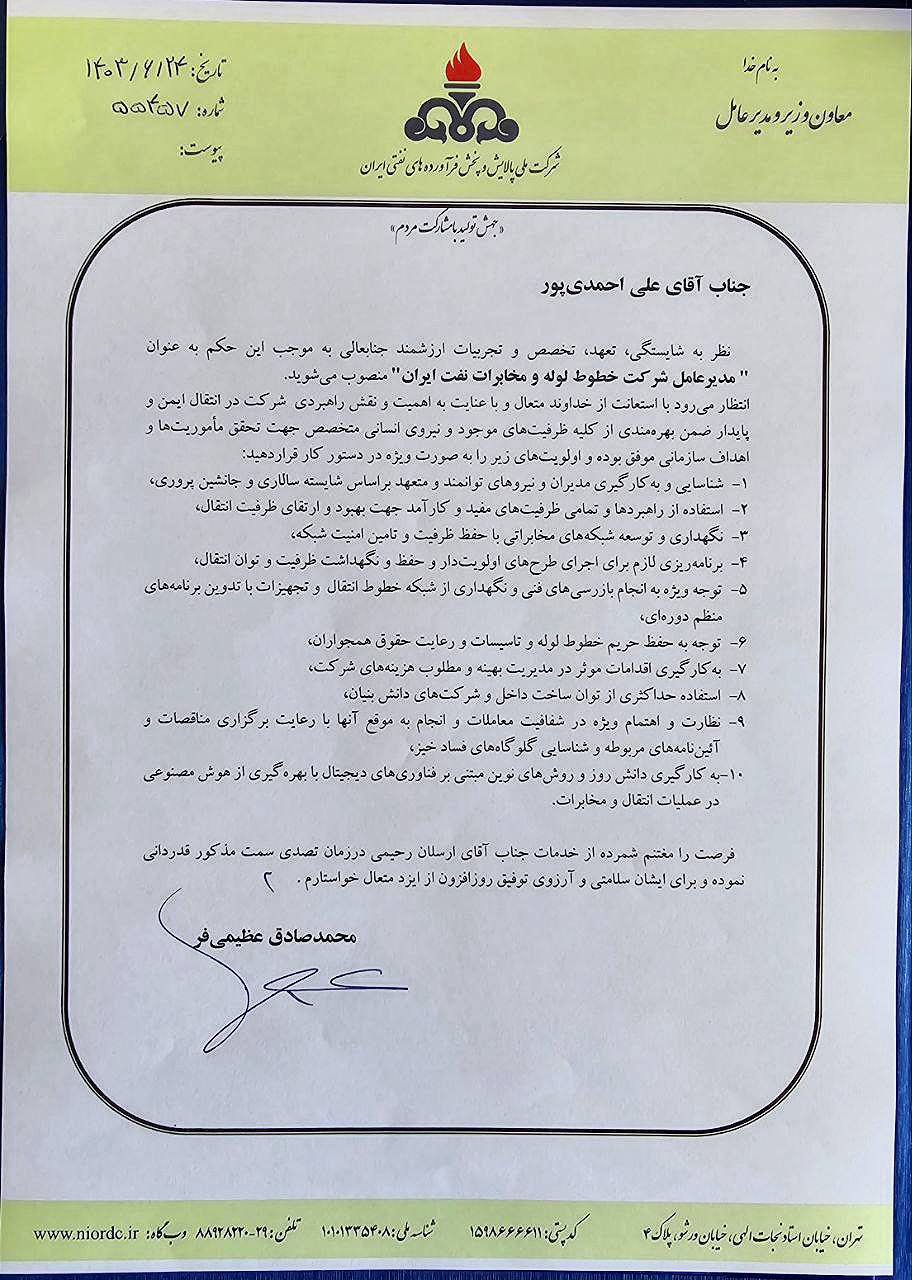 به نام خدا
معاون وزیر و مدیر عامل
شرکت ملی پالایش و پخش فرآورده های نفتی ایران
تاریخ: ۱۴۰۳/۶/۲۴
شماره: ۵۵۴۵۷
پیوست:
«جهش تولید با مشارکت مردم»
جناب آقای علی احمدی‌پور
نظر به شایستگی، تعهد، تخصص و تجربیات ارزشمند جنابعالی به موجب این حکم به عنوان
" مدیرعامل شرکت خطوط لوله و مخابرات نفت ایران" منصوب می‌شوید.
انتظار می‌رود با استعانت از خداوند متعال و با عنایت به اهمیت و نقش راهبردی شرکت در انتقال ایمن و
پایدار ضمن بهره‌مندی از کلیه ظرفیت‌های موجود و نیروی انسانی متخصص جهت تحقق مأموریت‌ها و
اهداف سازمانی موفق بوده و اولویت‌های زیر را به صورت ویژه در دستور کار قراردهید:
۱- شناسایی و به‌کارگیری مدیران و نیروهای توانمند و متعهد براساس شایسته سالاری و جانشین پروری،
۲- استفاده از راهبردها و تمامی ظرفیت‌های مفید و کارآمد جهت بهبود و ارتقای ظرفیت انتقال،
۳- نگهداری و توسعه شبکه‌های مخابراتی با حفظ ظرفیت و تامین امنیت شبکه،
۴- برنامه‌ریزی لازم برای اجرای طرح‌های اولویت‌دار و حفظ و نگهداشت ظرفیت و توان انتقال،
۵- توجه ویژه به انجام بازرسی‌های فنی و نگهداری از شبکه خطوط انتقال و تجهیزات با تدوین برنامه‌های
منظم دوره‌ای،
۶- توجه به حفظ حریم خطوط لوله و تاسیسات و رعایت حقوق همجواران،
۷- به‌کارگیری اقدامات موثر در مدیریت بهینه و مطلوب هزینه‌های شرکت،
۸- استفاده حداکثری از توان ساخت داخل و شرکت‌های دانش بنیان،
۹- نظارت و اهتمام ویژه در شفافیت معاملات و انجام به موقع آنها با رعایت برگزاری مناقصات و
آئین‌نامه‌های مربوطه و شناسایی گلوگاه‌های فساد خیز،
۱۰-به کارگیری دانش روز و روش‌های نوین مبتنی بر فناوری‌های دیجیتال با بهره‌گیری از هوش مصنوعی
در عملیات انتقال و مخابرات.
فرصت را مغتنم شمرده از خدمات جناب آقای ارسلان رحیمی درزمان تصدی سمت مذکور قدردانی
نموده و برای ایشان سلامتی و آرزوی توفیق روزافزون از ایزد متعال خواستارم .
محمدصادق عظیمی‌فر
تهران، خیابان استاد نجات الهی، خیابان ورشو، پلاک ۴ کد پستی: ۱۵۹۸۶۶۶۶۱۱ شناسه ملی: ۱۰۱۰۱۳۳۵۴۰۸ تلفن: ۲۹-۸۸۹۲۸۲۲۰ وب‌گاه: www.niordc.ir